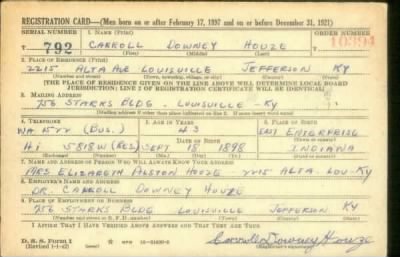 REGISTRATION CARD—(Men born on or after February 17, 1897 and on or before December 31, 1921)
SERIAL NUMBER 1. NAME (Print) ORDER NUMBER
T 792 CARROLL DOWNEY HOUZE 10394
(First) (Middle) (Last)
2. PLACE OF RESIDENCE (Print)
2215 ALTA AVE LOUISVILLE JEFFERSON KY
(Number and street) (Town, township, village, or city) (County) (State)
[THE PLACE OF RESIDENCE GIVEN ON THE LINE ABOVE WILL DETERMINE LOCAL BOARD
JURISDICTION; LINE 2 OF REGISTRATION CERTIFICATE WILL BE IDENTICAL]
3. MAILING ADDRESS
756 STARKS BLDG - LOUISVILLE - KY
[Mailing address if other than place indicated on line 2. If same insert word same]
4. TELEPHONE 5. AGE IN YEARS 6. PLACE OF BIRTH
WA 1577 (BUS.) 43 ENTERPRISE
DATE OF BIRTH
HI 5818W (RES) SEPT 18 1898 INDIANA
(Exchange) (Number) (Mo.) (Day) (Yr.) (State or country)
7. NAME AND ADDRESS OF PERSON WHO WILL ALWAYS KNOW YOUR ADDRESS
MRS ELIZABETH ALSTON HOUZE 2215 ALTA. LOU-KY
8. EMPLOYER'S NAME AND ADDRESS
DR. CARROLL DOWNEY HOUZE
9. PLACE OF EMPLOYMENT OR BUSINESS
756 STARKS BLDG LOUISVILLE JEFFERSON KY
(Number and street or R. F. D. number) (Town) (County) (State)
I AFFIRM THAT I HAVE VERIFIED ABOVE ANSWERS AND THAT THEY ARE TRUE.
D. S. S. Form 1
(Revised 1-1-42) (over) Carroll Downey Houze
(Registrant's signature)